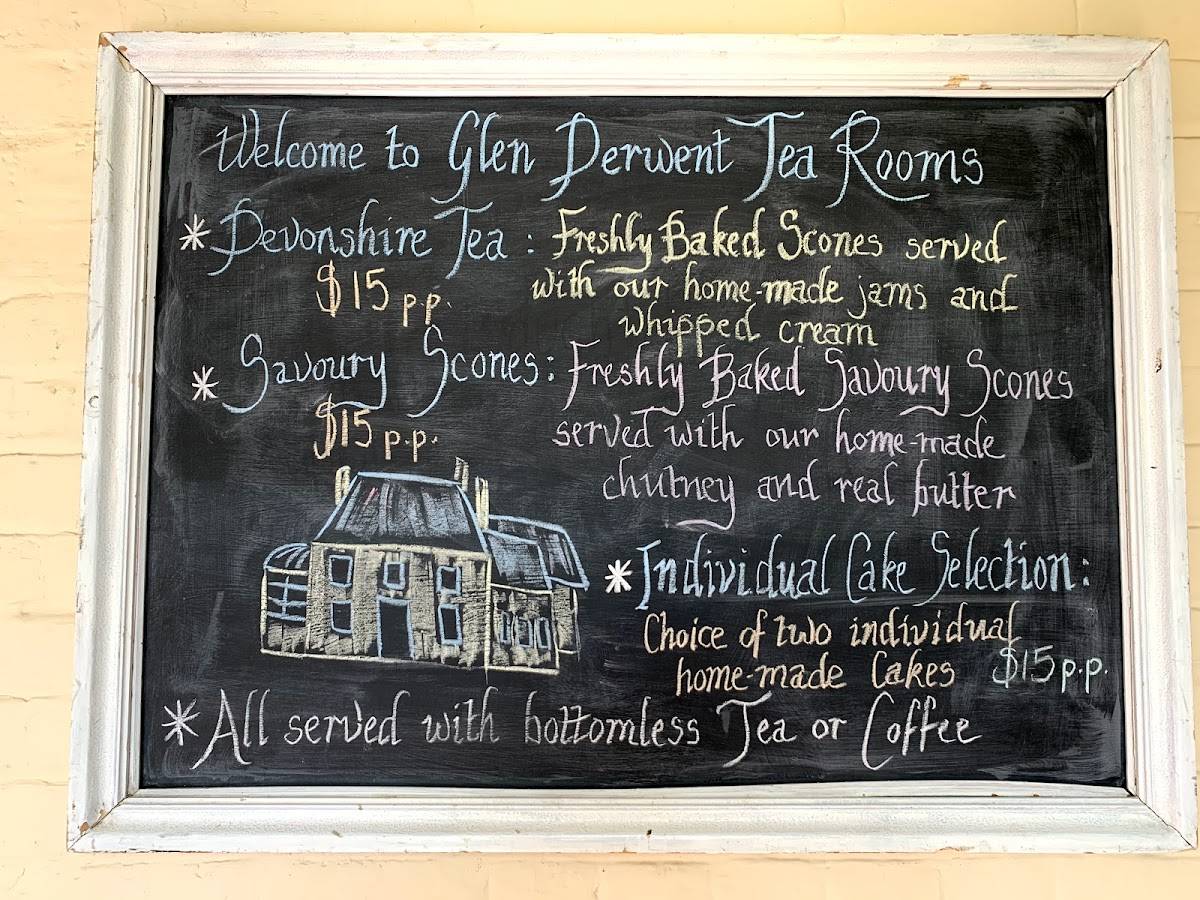 Welcome to Glen Derwent Tea Rooms
* Devonshire Tea : Freshly Baked Scones served
$15 p.p. with our home-made jams and
whipped cream
* Savoury Scones: Freshly Baked Savoury Scones
$15 p.p. served with our home-made
chutney and real butter
* Individual Cake Selection:
Choice of two individual
home-made Cakes $15 p.p.
* All served with bottomless Tea or Coffee